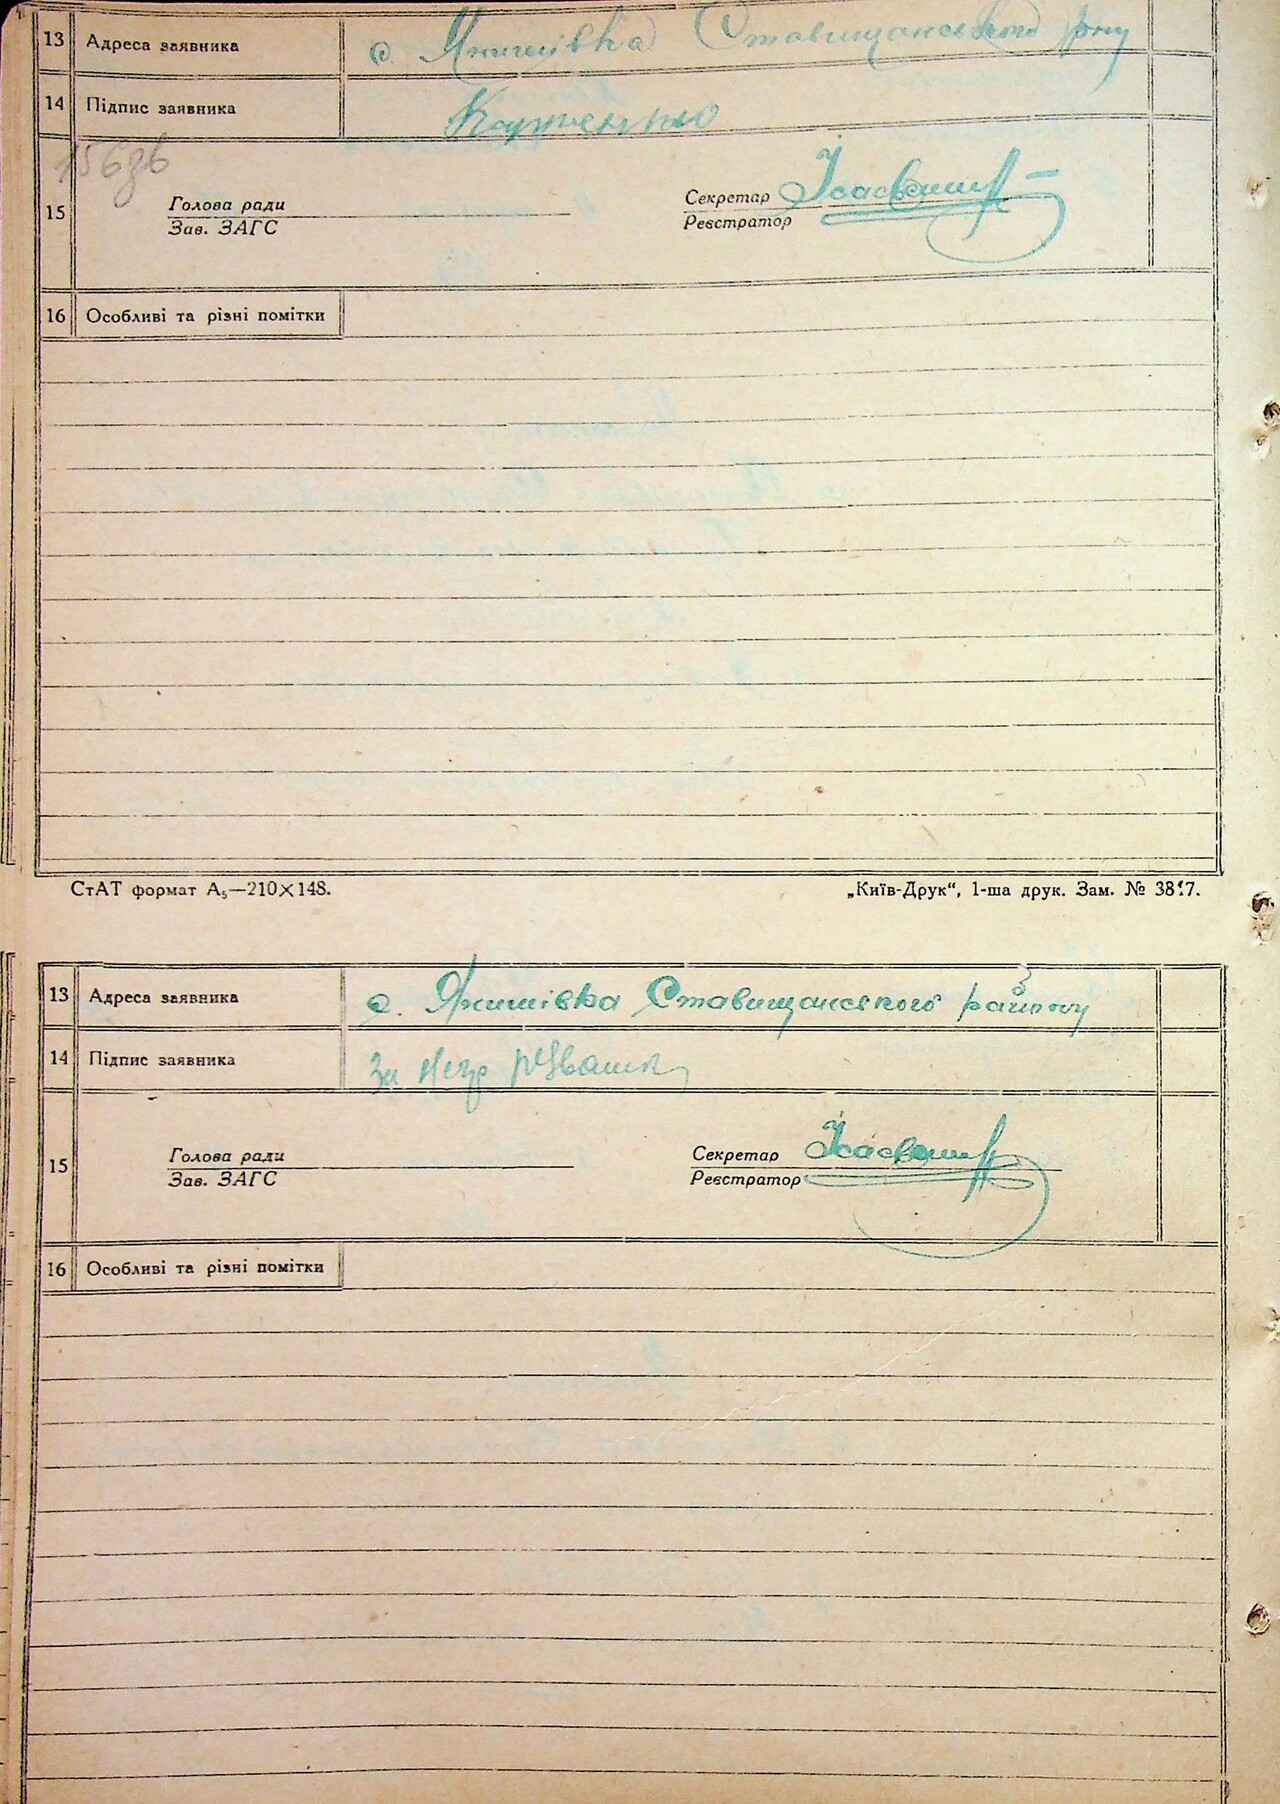 13 Адреса заявника с. Янишівка Ставищанського р-ну
14 Підпис заявника
156зв
15 Голова ради Секретар
Зав. ЗАГС Реєстратор
16 Особливі та різні помітки
СтАТ формат А₅—210×148. „Київ-Друк“, 1-ша друк. Зам. № 3817.
13 Адреса заявника с. Янишівка Ставищанського району
14 Підпис заявника За
15 Голова ради Секретар
Зав. ЗАГС Реєстратор
16 Особливі та різні помітки